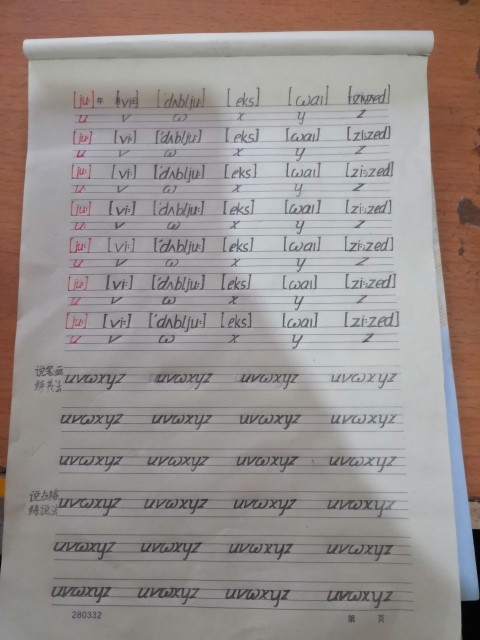 [ju:] [vi:] ['dʌblju:] [eks] [waɪ] [zi:zed]
u v w x y z
[ju:] [vi:] ['dʌblju:] [eks] [waɪ] [zi:zed]
u v w x y z
[ju:] [vi:] ['dʌblju:] [eks] [waɪ] [zi:zed]
u v w x y z
[ju:] [vi:] ['dʌblju:] [eks] [waɪ] [zi:zed]
u v w x y z
[ju:] [vi:] ['dʌblju:] [eks] [waɪ] [zi:zed]
u v w x y z
[ju:] [vi:] ['dʌblju:] [eks] [waɪ] [zi:zed]
u v w x y z
[ju:] [vi:] ['dʌblju:] [eks] [waɪ] [zi:zed]
u v w x y z
uvwxyz uvwxyz uvwxyz uvwxyz
uvwxyz uvwxyz uvwxyz uvwxyz
uvwxyz uvwxyz uvwxyz uvwxyz
uvwxyz uvwxyz uvwxyz uvwxyz
uvwxyz uvwxyz uvwxyz uvwxyz
uvwxyz uvwxyz uvwxyz uvwxyz
280332 第 页